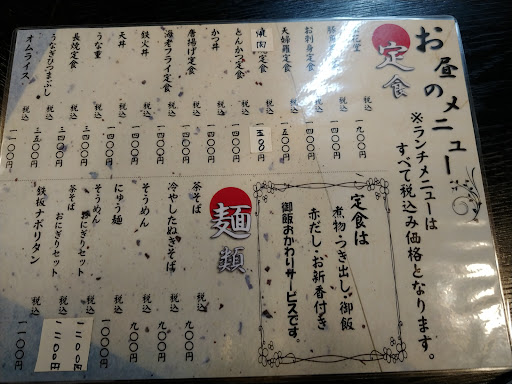 お昼のメニュー
※ランチメニューは
すべて税込み価格となります。
定食
税込 一、九〇〇円
税込 一、四〇〇円
お刺身定食 税込 一、四〇〇円
天婦羅定食 税込 一、五〇〇円
焼肉定食 税込 一、五〇〇円
とんかつ定食 税込 一、四〇〇円
かつ丼 税込 一、一〇〇円
唐揚げ定食 税込 一、四〇〇円
海老フライ定食 税込 一、四〇〇円
鉄火丼 税込 一、四〇〇円
天丼 税込 一、一〇〇円
うな重 税込 三、四〇〇円
長焼定食 税込 三、四〇〇円
うなぎひつまぶし 税込 三、五〇〇円
オムライス 税込 一、一〇〇円
定食は
煮物・つき出し・御飯
赤だし・お新香付き
御飯おかわりサービスです。
麺類
茶そば 税込 九〇〇円
冷やしたぬきそば 税込 九〇〇円
そうめん 税込 九〇〇円
にゅう麺 税込 一、〇〇〇円
そうめん おにぎりセット 税込 一二〇〇円
茶そば おにぎりセット 税込 一二〇〇円
鉄板ナポリタン 税込 一、一〇〇円